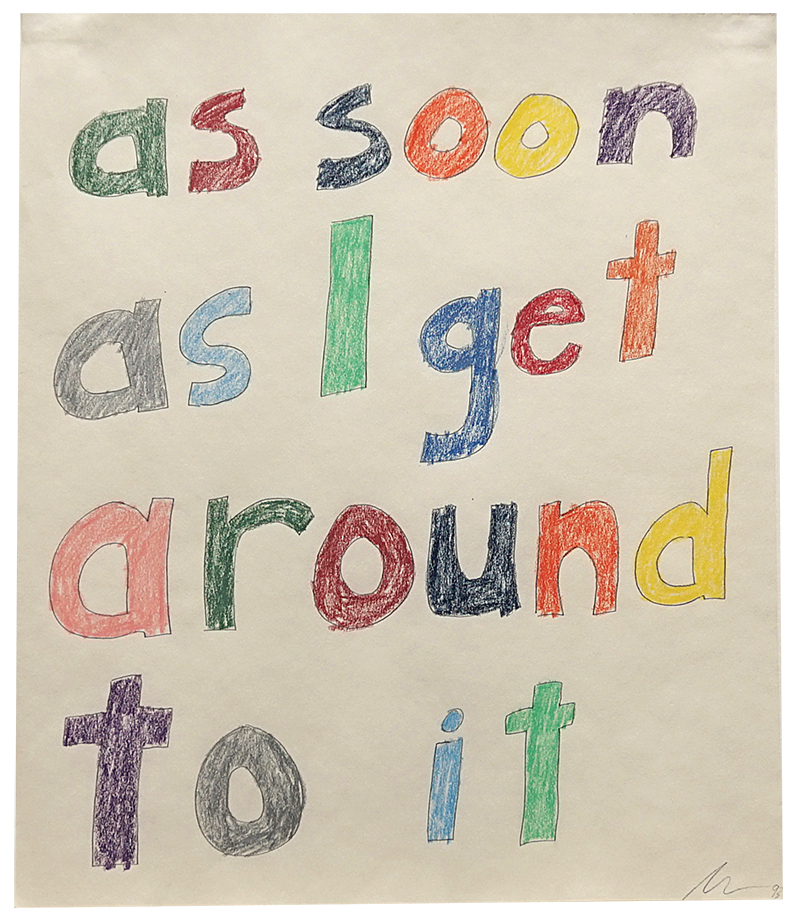 as soon
as I get
around
to it